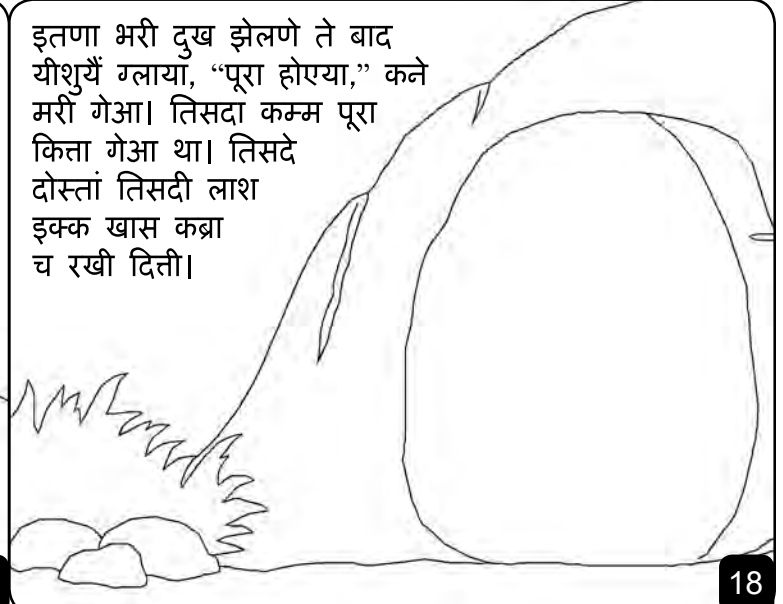 इतणा भरी दुख झेलणे ते बाद
यीशुयैं ग्लाया, “पूरा होएया,” कने
मरी गेआ। तिसदा कम्म पूरा
कित्ता गेआ था। तिसदे
दोस्तां तिसदी लाश
इक्क खास कब्रा
च रखी दित्ती।
18